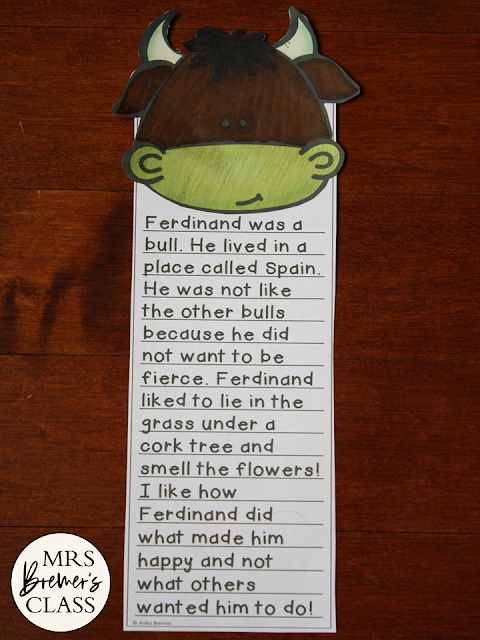 Ferdinand was a
bull. He lived in a
place called Spain.
He was not like
the other bulls
because he did
not want to be
fierce. Ferdinand
liked to lie in the
grass under a
cork tree and
smell the flowers!
I like how
Ferdinand did
what made him
happy and not
what others
wanted him to do!
© Anita Bremer
MRS
Bremer's
CLASS